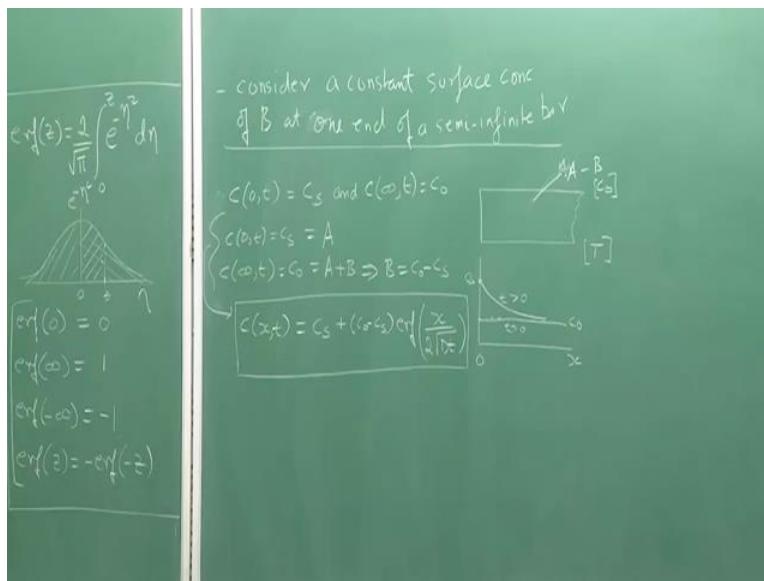 erf(z) = 2/√π ∫₀ᶻ e^-η² dη
e^-η²
0 z η
erf(0) = 0
erf(∞) = 1
erf(-∞) = -1
erf(z) = -erf(-z)
- consider a constant surface conc
of B at one end of a semi-infinite bar
c(0,t) = Cs and c(∞,t) = C0
c(0,t) = Cs = A
c(∞,t) = C0 = A+B ⇒ B = C0-Cs
c(x,t) = Cs + (C0-Cs) erf(x/2√Dt)
A-B
[C0]
[T]
Cs
t>0
t=0
C0
0 x